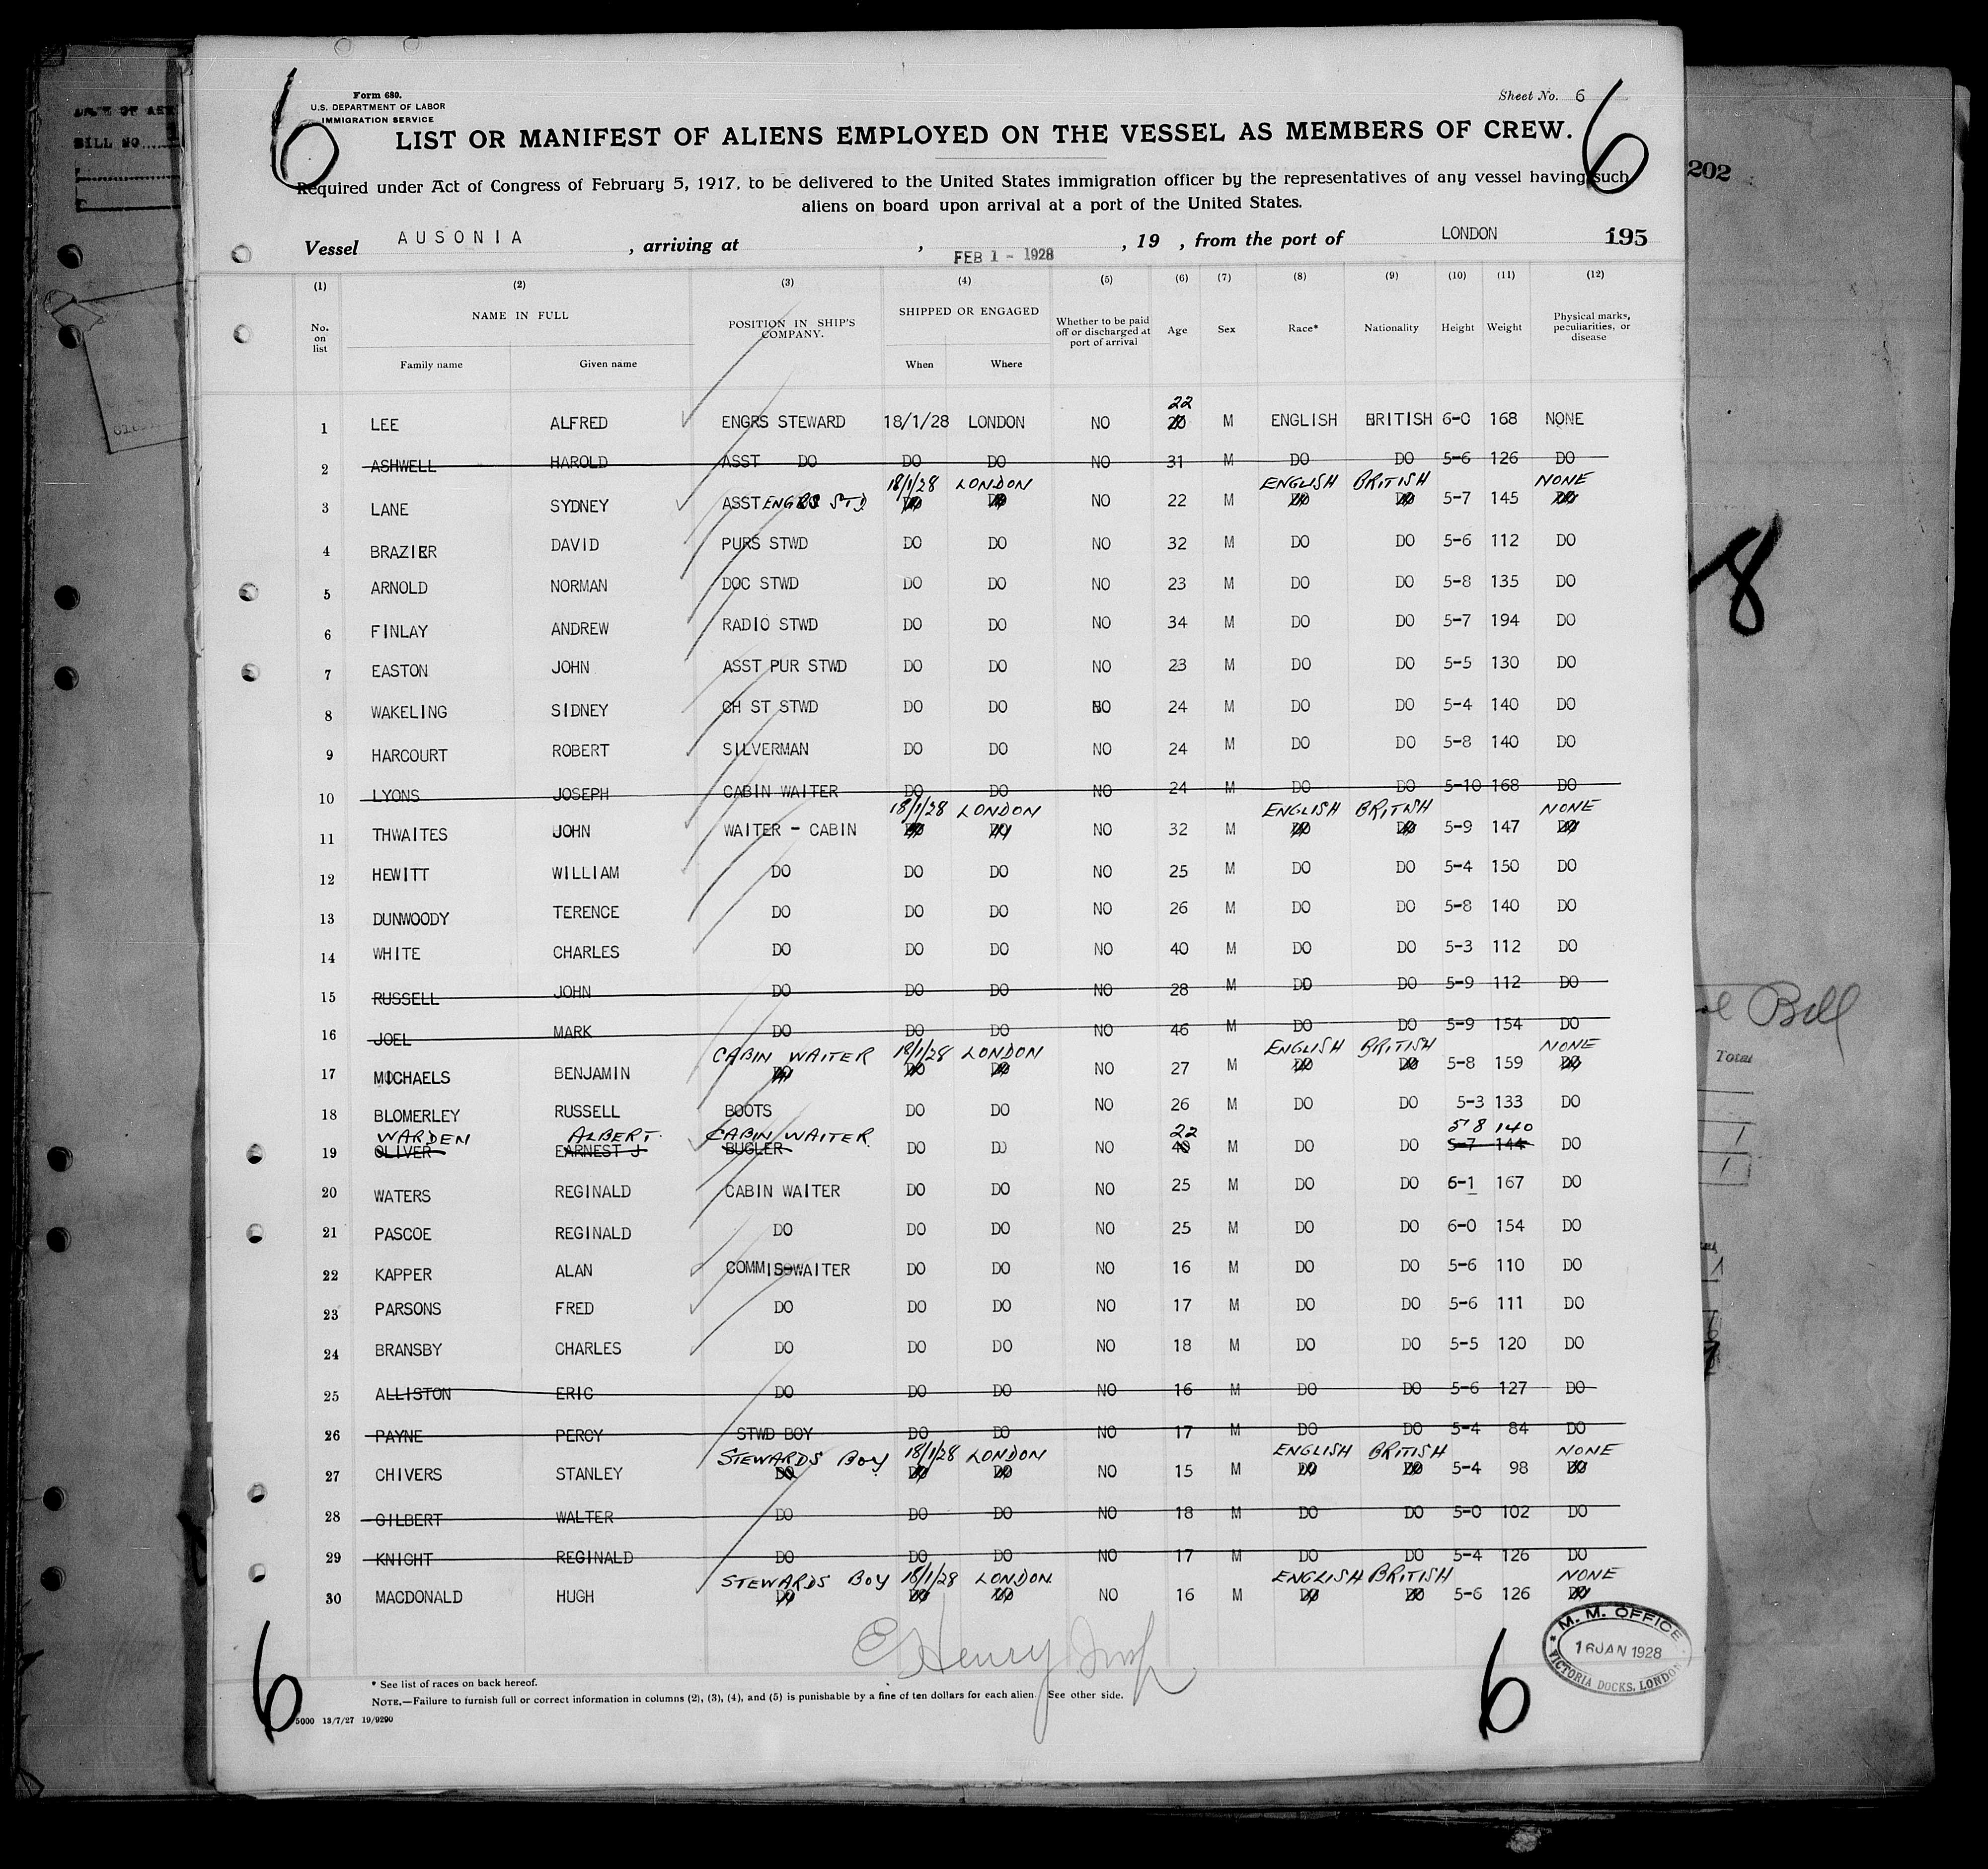 Form 680.
U.S. DEPARTMENT OF LABOR
IMMIGRATION SERVICE
Sheet No. 6
6 6
LIST OR MANIFEST OF ALIENS EMPLOYED ON THE VESSEL AS MEMBERS OF CREW.
Required under Act of Congress of February 5, 1917, to be delivered to the United States immigration officer by the representatives of any vessel having such
aliens on board upon arrival at a port of the United States.
Vessel AUSONIA , arriving at , FEB 1 - 1928 , 19 , from the port of LONDON 195
(1) (2) (3) (4) (5) (6) (7) (8) (9) (10) (11) (12)
No. on list NAME IN FULL POSITION IN SHIP'S COMPANY. SHIPPED OR ENGAGED Whether to be paid off or discharged at port of arrival Age Sex Race* Nationality Height Weight Physical marks, peculiarities, or disease
Family name Given name When Where
22
1 LEE ALFRED ENGRS STEWARD 18/1/28 LONDON NO M ENGLISH BRITISH 6-0 168 NONE
2 ASHWELL HAROLD ASST DO DO DO NO 31 M DO DO 5-6 126 DO
18/1/28 LONDON ENGLISH BRITISH NONE
3 LANE SYDNEY ASST ENGRS STD DO DO NO 22 M DO DO 5-7 145 DO
4 BRAZIER DAVID PURS STWD DO DO NO 32 M DO DO 5-6 112 DO
5 ARNOLD NORMAN DOC STWD DO DO NO 23 M DO DO 5-8 135 DO
6 FINLAY ANDREW RADIO STWD DO DO NO 34 M DO DO 5-7 194 DO
7 EASTON JOHN ASST PUR STWD DO DO NO 23 M DO DO 5-5 130 DO
8 WAKELING SIDNEY CH ST STWD DO DO NO 24 M DO DO 5-4 140 DO
9 HARCOURT ROBERT SILVERMAN DO DO NO 24 M DO DO 5-8 140 DO
10 LYONS JOSEPH CABIN WAITER DO DO NO 24 M DO DO 5-10 168 DO
18/1/28 LONDON ENGLISH BRITISH NONE
11 THWAITES JOHN WAITER - CABIN DO DO NO 32 M DO DO 5-9 147 DO
12 HEWITT WILLIAM DO DO DO NO 25 M DO DO 5-4 150 DO
13 DUNWOODY TERENCE DO DO DO NO 26 M DO DO 5-8 140 DO
14 WHITE CHARLES DO DO DO NO 40 M DO DO 5-3 112 DO
15 RUSSELL JOHN DO DO DO NO 28 M DO DO 5-9 112 DO
16 JOEL MARK DO DO DO NO 46 M DO DO 5-9 154 DO
CABIN WAITER 18/1/28 LONDON ENGLISH BRITISH NONE
17 MICHAELS BENJAMIN DO DO DO NO 27 M DO DO 5-8 159 DO
18 BLOMERLEY RUSSELL BOOTS DO DO NO 26 M DO DO 5-3 133 DO
WARDEN ALBERT. CABIN WAITER. 22 5'8 140
19 OLIVER EARNEST J BUGLER DO DO NO 40 M DO DO 5-7 144 DO
20 WATERS REGINALD CABIN WAITER DO DO NO 25 M DO DO 6-1 167 DO
21 PASCOE REGINALD DO DO DO NO 25 M DO DO 6-0 154 DO
22 KAPPER ALAN COMMIS-WAITER DO DO NO 16 M DO DO 5-6 110 DO
23 PARSONS FRED DO DO DO NO 17 M DO DO 5-6 111 DO
24 BRANSBY CHARLES DO DO DO NO 18 M DO DO 5-5 120 DO
25 ALLISTON ERIC DO DO DO NO 16 M DO DO 5-6 127 DO
26 PAYNE PERCY STWD BOY DO DO NO 17 M DO DO 5-4 84 DO
STEWARDS BOY 18/1/28 LONDON ENGLISH BRITISH NONE
27 CHIVERS STANLEY DO DO DO NO 15 M DO DO 5-4 98 DO
28 GILBERT WALTER DO DO DO NO 18 M DO DO 5-0 102 DO
29 KNIGHT REGINALD DO DO DO NO 17 M DO DO 5-4 126 DO
STEWARDS BOY 18/1/28 LONDON ENGLISH BRITISH NONE
30 MACDONALD HUGH DO DO DO NO 16 M DO DO 5-6 126 DO
E Henry Insp
M. M. OFFICE
16 JAN 1928
VICTORIA DOCKS, LONDON
* See list of races on back hereof.
NOTE.—Failure to furnish full or correct information in columns (2), (3), (4), and (5) is punishable by a fine of ten dollars for each alien. See other side.
5000 13/7/27 19/9290
6 6
BILL NO
202
8
Bell
Total